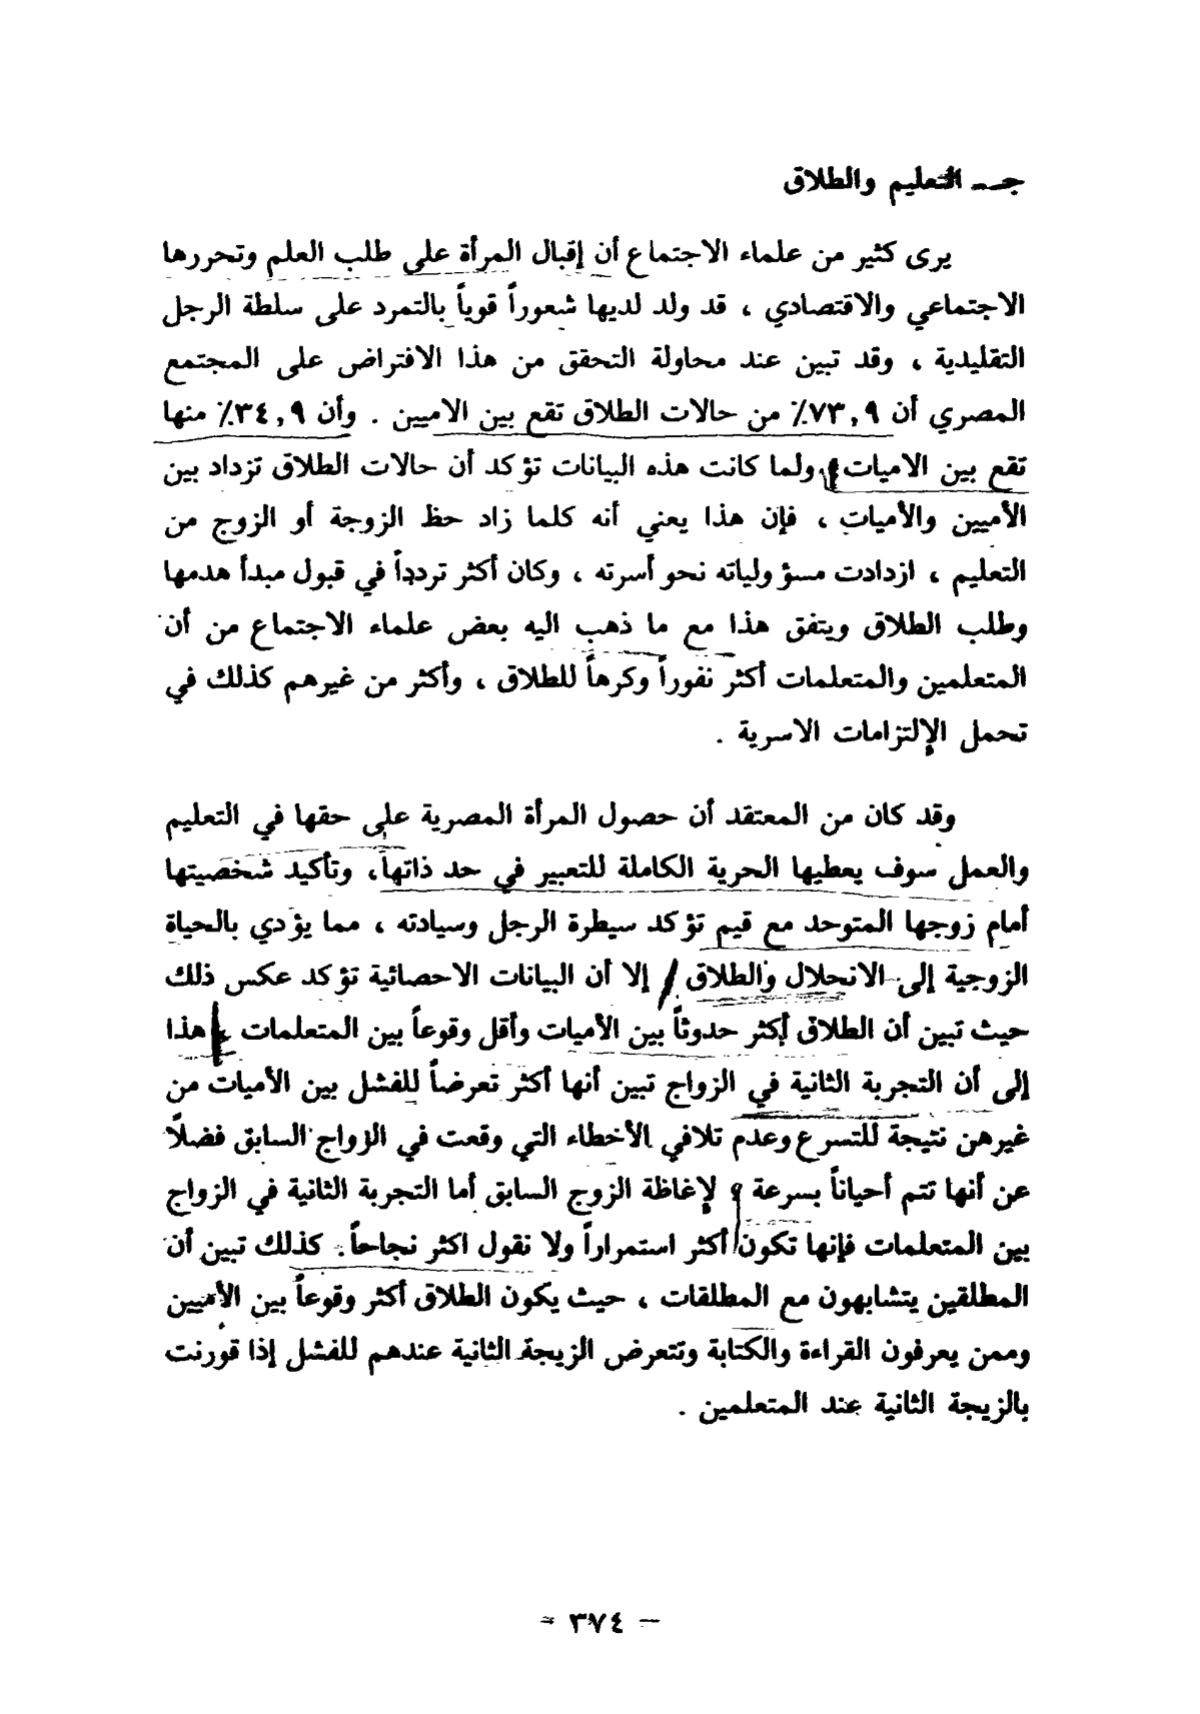 جـ ـ التعليم والطلاق
يرى كثير من علماء الاجتماع أن إقبال المرأة على طلب العلم وتحررها
الاجتماعي والاقتصادي ، قد ولد لديها شعوراً قوياً بالتمرد على سلطة الرجل
التقليدية ، وقد تبين عند محاولة التحقق من هذا الافتراض على المجتمع
المصري أن ٧٣,٩٪ من حالات الطلاق تقع بين الاميين . وأن ٣٤,٩٪ منها
تقع بين الاميات ، ولما كانت هذه البيانات تؤكد أن حالات الطلاق تزداد بين
الأميين والأميات ، فإن هذا يعني أنه كلما زاد حظ الزوجة أو الزوج من
التعليم ، ازدادت مسؤولياته نحو أسرته ، وكان أكثر تردداً في قبول مبدأ هدمها
وطلب الطلاق ويتفق هذا مع ما ذهب اليه بعض علماء الاجتماع من أن
المتعلمين والمتعلمات أكثر نفوراً وكرهاً للطلاق ، وأكثر من غيرهم كذلك في
تحمل الإلتزامات الاسرية .
وقد كان من المعتقد أن حصول المرأة المصرية على حقها في التعليم
والعمل سوف يعطيها الحرية الكاملة للتعبير في حد ذاتها، وتأكيد شخصيتها
أمام زوجها المتوحد مع قيم تؤكد سيطرة الرجل وسيادته ، مما يؤدي بالحياة
الزوجية إلى الانحلال والطلاق . إلا أن البيانات الاحصائية تؤكد عكس ذلك
حيث تبين أن الطلاق أكثر حدوثاً بين الأميات وأقل وقوعاً بين المتعلمات ، هذا
إلى أن التجربة الثانية في الزواج تبين أنها أكثر تعرضاً للفشل بين الأميات من
غيرهن نتيجة للتسرع وعدم تلافي الأخطاء التي وقعت في الزواج السابق فضلاً
عن أنها تتم أحياناً بسرعة لإغاظة الزوج السابق أما التجربة الثانية في الزواج
بين المتعلمات فإنها تكون أكثر استمراراً ولا نقول اكثر نجاحاً . كذلك تبين أن
المطلقين يتشابهون مع المطلقات ، حيث يكون الطلاق أكثر وقوعاً بين الأميين
وممن يعرفون القراءة والكتابة وتتعرض الزيجة الثانية عندهم للفشل إذا قورنت
بالزيجة الثانية عند المتعلمين .
- ٣٧٤ -